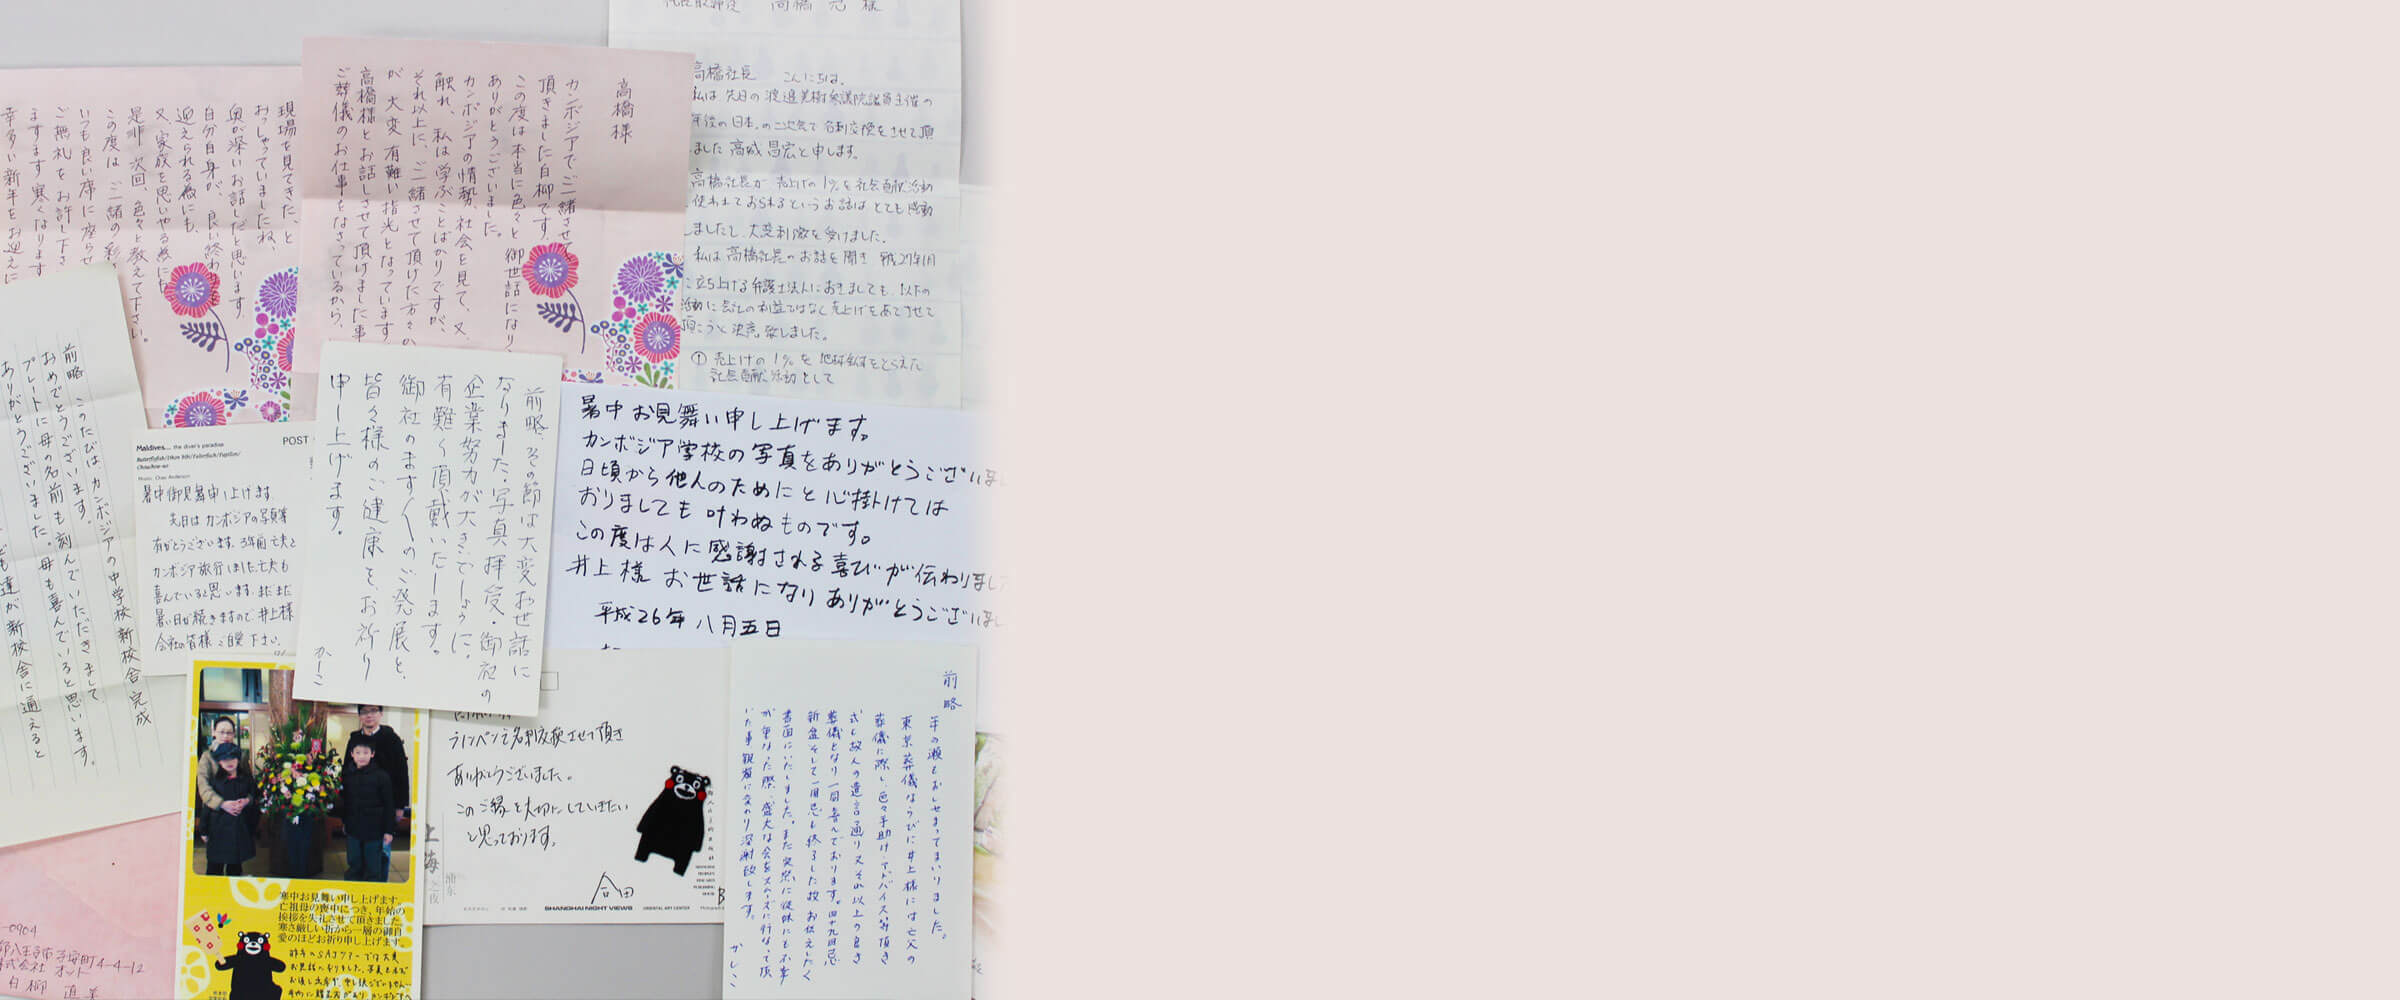 高橋様
カンボジアでご一緒させて
頂きました白柳です。
この度は本当に色々と御世話になり、
ありがとうございました。
カンボジアの情勢、社会を見て、又、
触れ、私は学ぶことばかりですが、
それ以上に、ご一緒させて頂けた方々
が大変有難い指光となっています
高橋様とお話しさせて頂けました事
ご葬儀のお仕事をなさっているから、
現場を見てきた、と
おっしゃっていましたね、
奥が深いお話しだと思います。
自分自身が、良い終わり
迎えられる為にも、
又、家族を思いやる為にも
是非次回、色々と教えて下さい。
この度は、ご一緒の
いつも良い席に座らせ
ご無礼をお許し下さ
ますます寒くなります
幸多い新年をお迎えに
高橋社長 こんにちは。
私は先日の渡邉美樹参議院議員主催の
年後の日本。の二次会で名刺交換をさせて頂
しました高城昌宏と申します。
高橋社長が売上げの1%を社会貢献活動
使われておられるというお話はとても感動
しましたし、大変刺激を受けました。
私は高橋社長のお話を聞き 平成27年1月
に立ち上げる弁護士法人におきましても、以下の
活動に会社の利益ではなく売上げをあてさせて
頂こうと決意致しました。
① 売上げの1%を地球全体をとらえた
社会貢献活動として
前略 このたびはカンボジアの中学校新校舎完成
おめでとうございます。
プレートに母の名前も刻んでいただきまして
ありがとうございました。母も喜んでいると思います。
達が新校舎に通えると
Maldives... the diver's paradise
POST
暑中御見舞申し上げます
先日はカンボジアの写真等
有がとうございます。3年前亡夫と
カンボジア旅行しました亡夫も
喜んでいると思います。まだまだ
暑い日が続きますので井上様
会社の皆様ご自愛下さい。
前略、その節は大変お世話に
なりました・写真拝受・御社の
企業努力が大きいでしょうに。
有難く頂戴いたします。
御社のますますのご発展と、
皆々様のご健康を、お祈り
申し上げます。
かしこ
暑中お見舞い申し上げます。
カンボジア学校の写真をありがとうございまし
日頃から他人のためにと心掛けては
おりましても叶わぬものです。
この度は人に感謝される喜びが伝わりました
井上様お世話になりありがとうございまし
平成26年 八月五日
寒中お見舞い申し上げます。
亡祖母の喪中につき、年始の
挨拶を失礼させて頂きました
寒さ厳しい折から一層の御自
愛のほどお祈り申し上げます。
で名刺交換させて頂き
ありがとうございました。
このご縁を大切にしていきたい
と思っております。
合田
上海之夜
浦东
SHANGHAI NIGHT VIEWS
ORIENTAL ART CENTER
前略
年の瀬もおしせまってまいりました。
東京葬儀ならびに井上様には亡父の
葬儀に際し、色々手助け・アドバイス等頂き
式も故人の遺言通り又それ以上の良き
葬儀となり一同喜んでおります。四十九日忌
新盆そして一周忌も終了した故お伝えしたく
書面にいたしました。また突然に従妹にも不幸
が重なった際、盛大な会をスムーズに行なって頂
いた事親族に変わり深謝致します。
かしこ
-0904
八王子市子安町4-4-12
株式会社 オット
白柳 直美